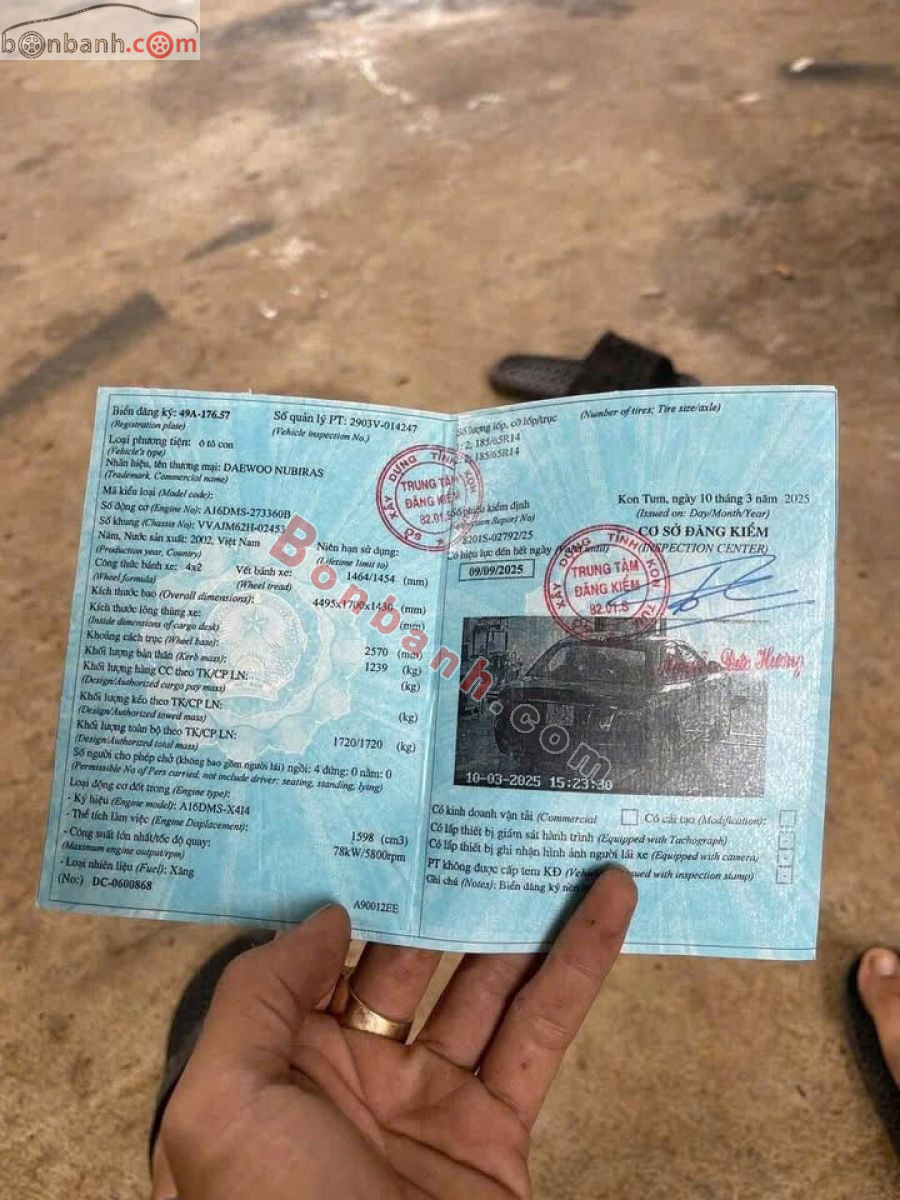 bonbanh.com
Biển đăng ký: 49A-176.57
(Registration plate)
Số quản lý PT: 2903V-014247
(Vehicle Inspection No.)
Loại phương tiện: ô tô con
(Vehicle's type)
Nhãn hiệu, tên thương mại: DAEWOO NUBIRAS
(Trademark, Commercial name)
Mã kiểu loại (Model code):
Số động cơ (Engine No): A16DMS-273360B
Số khung (Chassis No): VVAJM62H-02453
Năm, Nước sản xuất: 2002, Việt Nam
(Production year, Country)
Niên hạn sử dụng:
(Lifetime limit to)
Công thức bánh xe: 4x2
(Wheel formula)
Vết bánh xe: 1464/1454 (mm)
(Wheel tread)
Kích thước bao (Overall dimensions): 4495x1700x1430 (mm)
Kích thước lòng thùng xe: (mm)
(Inside dimensions of cargo desk)
Khoảng cách trục (Wheel base): 2570 (mm)
Khối lượng bản thân (Kerb mass): 1239 (kg)
Khối lượng hàng CC theo TK/CP LN: (kg)
(Design/Authorized cargo pay mass)
Khối lượng kéo theo TK/CP LN: (kg)
(Design/Authorized towed mass)
Khối lượng toàn bộ theo TK/CP LN: 1720/1720 (kg)
(Design/Authorized total mass)
Số người cho phép chở (không bao gồm người lái) ngồi: 4 đứng: 0 nằm: 0
(Permissible No of Pers carried, not include driver: seating, standing, lying)
Loại động cơ đốt trong (Engine type):
- Ký hiệu (Engine model): A16DMS-X414
- Thể tích làm việc (Engine Displacement): 1598 (cm3)
- Công suất lớn nhất/tốc độ quay: 78kW/5800rpm
(Maximum engine output/rpm)
- Loại nhiên liệu (Fuel): Xăng
(No:) DC-0600868
A90012EE
Số lượng lốp, cỡ lốp/trục (Number of tires; Tire size/axle)
: 2; 185/65R14
: 2; 185/65R14
Số phiếu kiểm định
Report No)
8201S-02792/25
Có hiệu lực đến hết ngày
09/09/2025
Kon Tum, ngày 10 tháng 3 năm 2025
(Issued on: Day/Month/Year)
CƠ SỞ ĐĂNG KIỂM
(INSPECTION CENTER)
SỞ XÂY DỰNG TỈNH KON
TRUNG TÂM
ĐĂNG KIỂM
82.01.S
SỞ XÂY DỰNG TỈNH KON TUM
TRUNG TÂM
ĐĂNG KIỂM
82.01.S
Đức Hương
10-03-2025 15:23:30
Có kinh doanh vận tải (Commercial
Có cải tạo (Modification):
Có lắp thiết bị giám sát hành trình (Equipped with Tachograph)
Có lắp thiết bị ghi nhận hình ảnh người lái xe (Equipped with camera)
PT không được cấp tem KĐ issued with inspection stamp)
Ghi chú (Notes): Biển đăng ký nền
Bonbanh.com